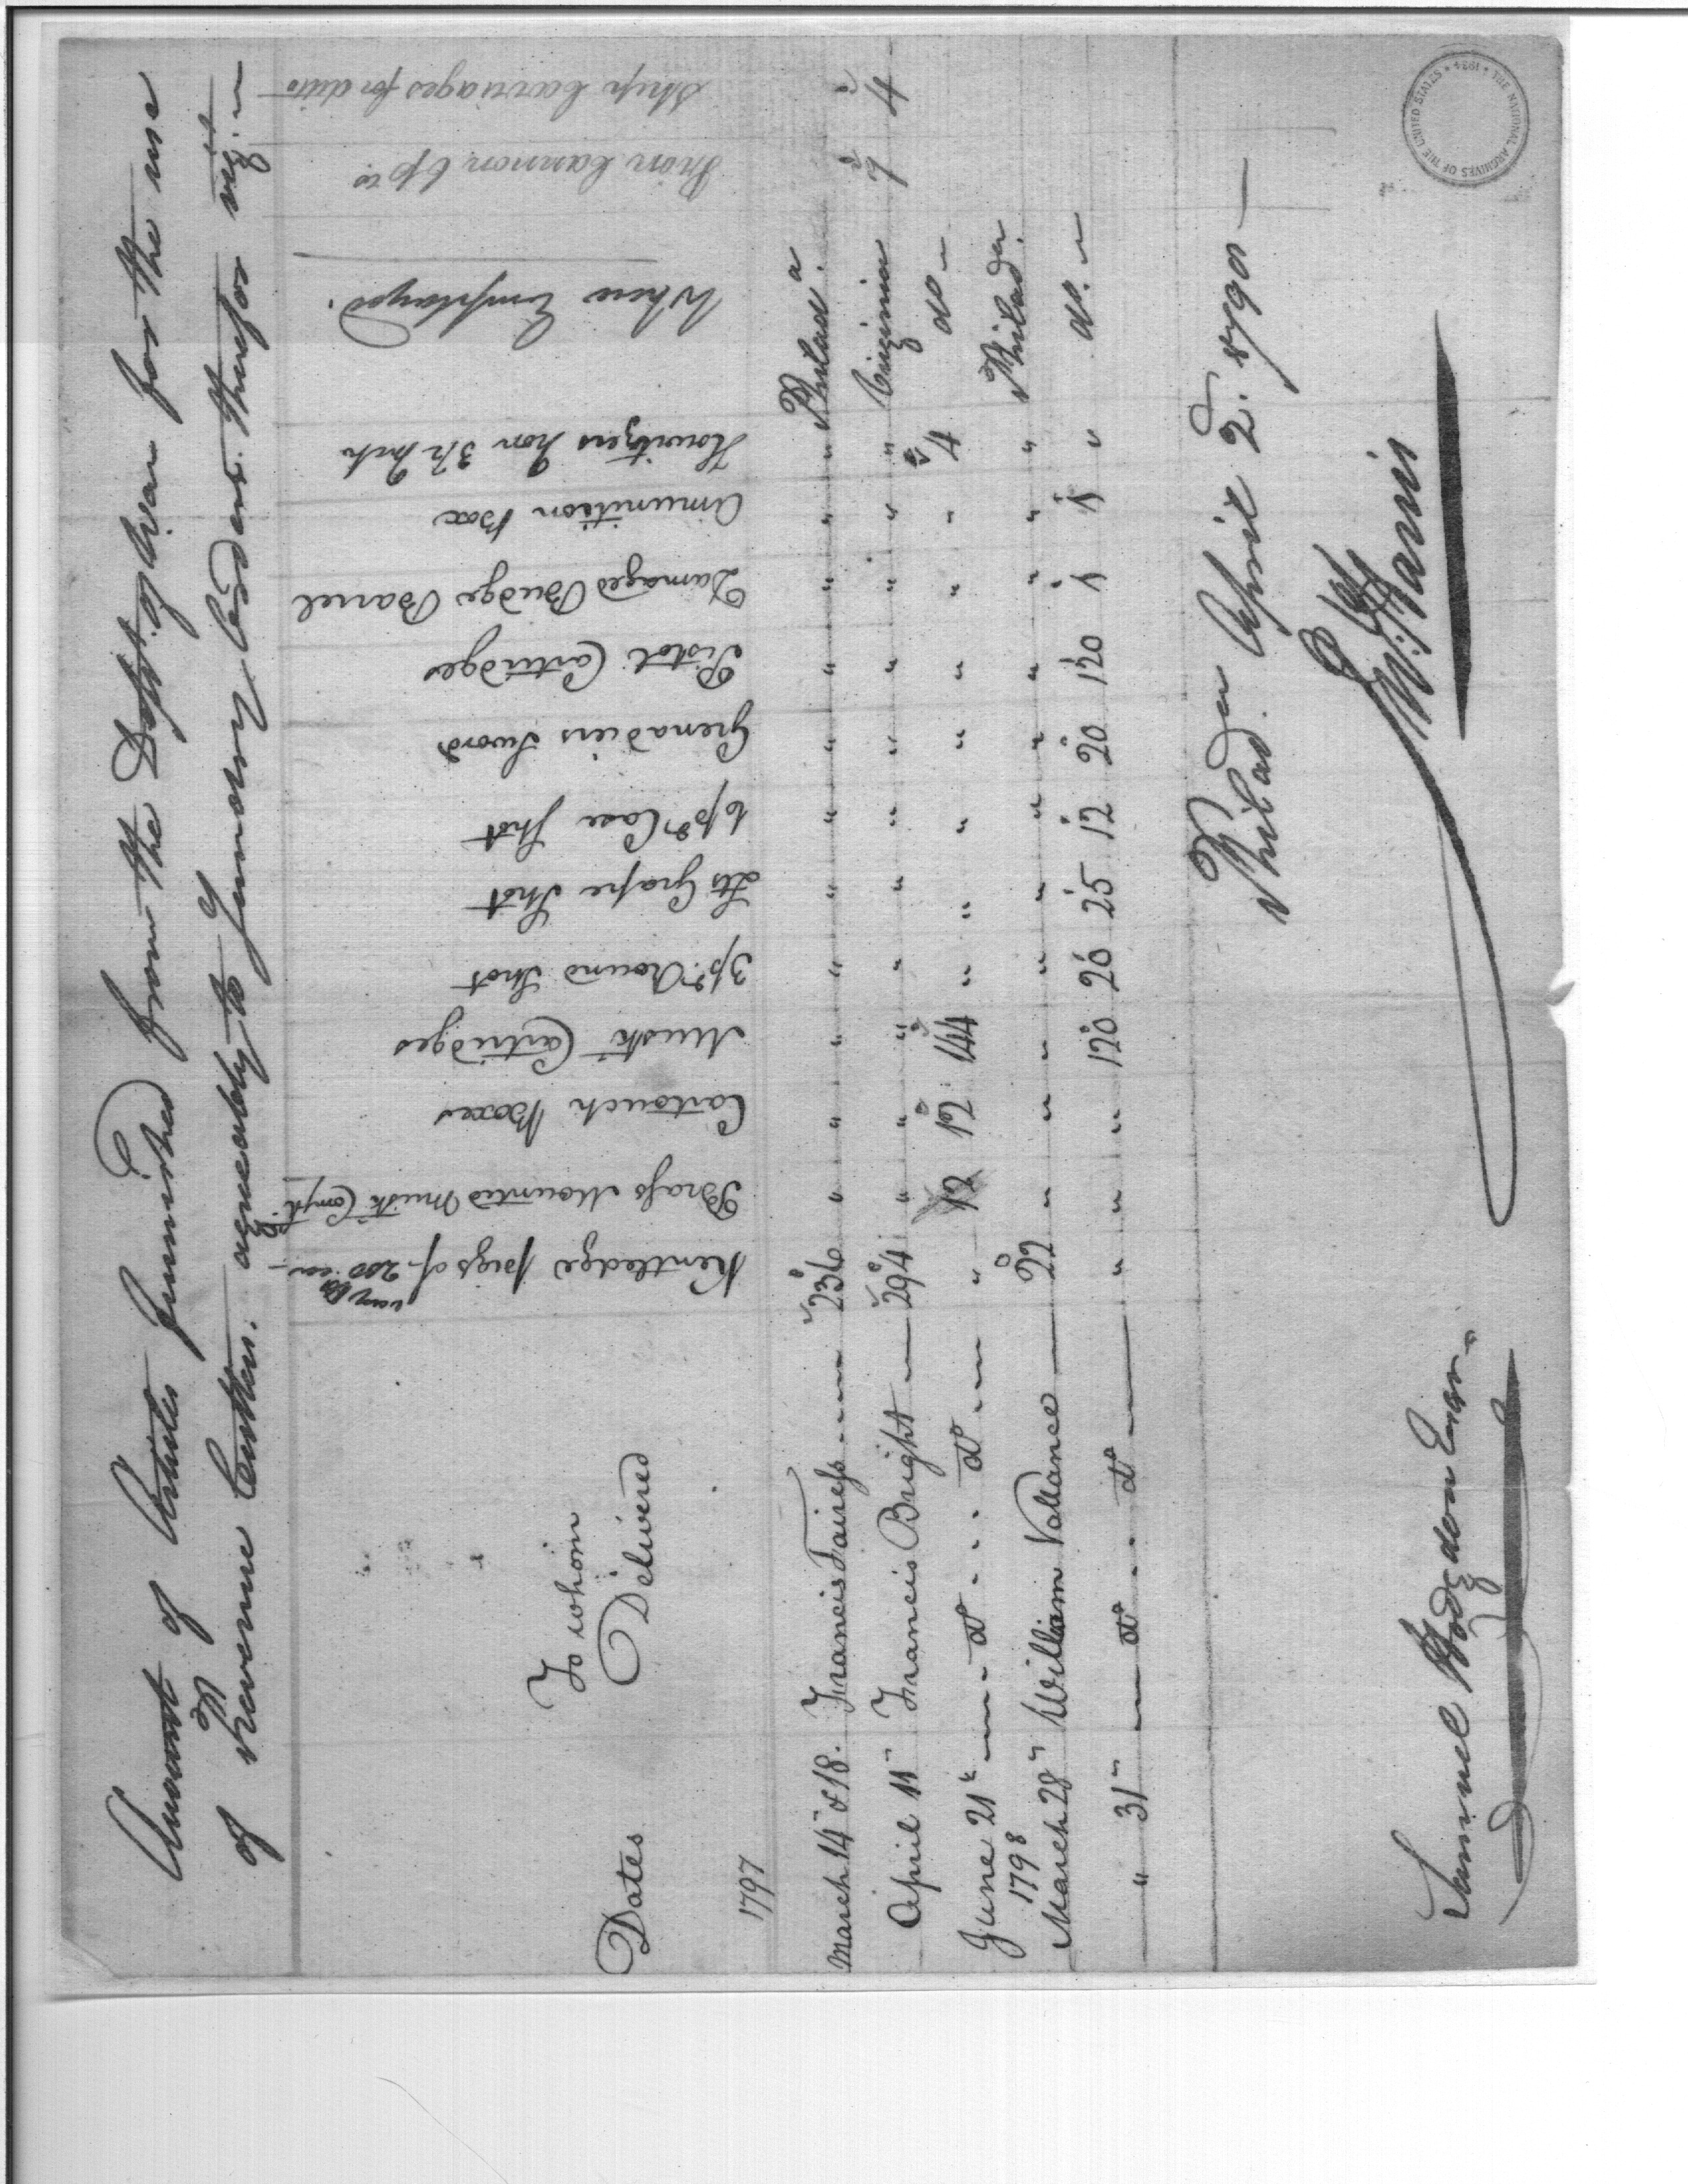 Amount of Articles furnished from the Dept. of War for the use
of the Revenue Cutters. agreeably to Summary Orders therefor viz:
Dates
To whom
Delivered
Kentledge pigs of 200 ea
Brass Mounted Musk.ts Compt.
Cartouch Boxes
Muskt. Cartridges
3 pr. Round Shot
lbs Grape Shot
6 pr. Case Shot
Grenadiers Swords
Pistol Cartridges
Damaged Budge Barrel
Amunition Box
Howitzers Iron 3 1/2 Inch
Where Employed.
Iron Cannon 6 prs.
Ship Carriages for ditto
1797
March 14 & 18. Francis Fairess 236 " " " " " " " " " " " Philada.
April 11 Francis Bright 294 " " " " " " " " " " " Virginia 7 4
June 21st do. do. " 12 12 144 " " " " " " " 4 do
1798
March 28 William Vallance 22 " " " " " " " " " " " Philada.
" 31 do. do. " " " 120 20 25 12 20 120 1 1 " do.
Philada. April 2d. 1798
W. Harris
Samuel Hodgdon Esqr.
THE NATIONAL ARCHIVES OF THE UNITED STATES • 1934 •